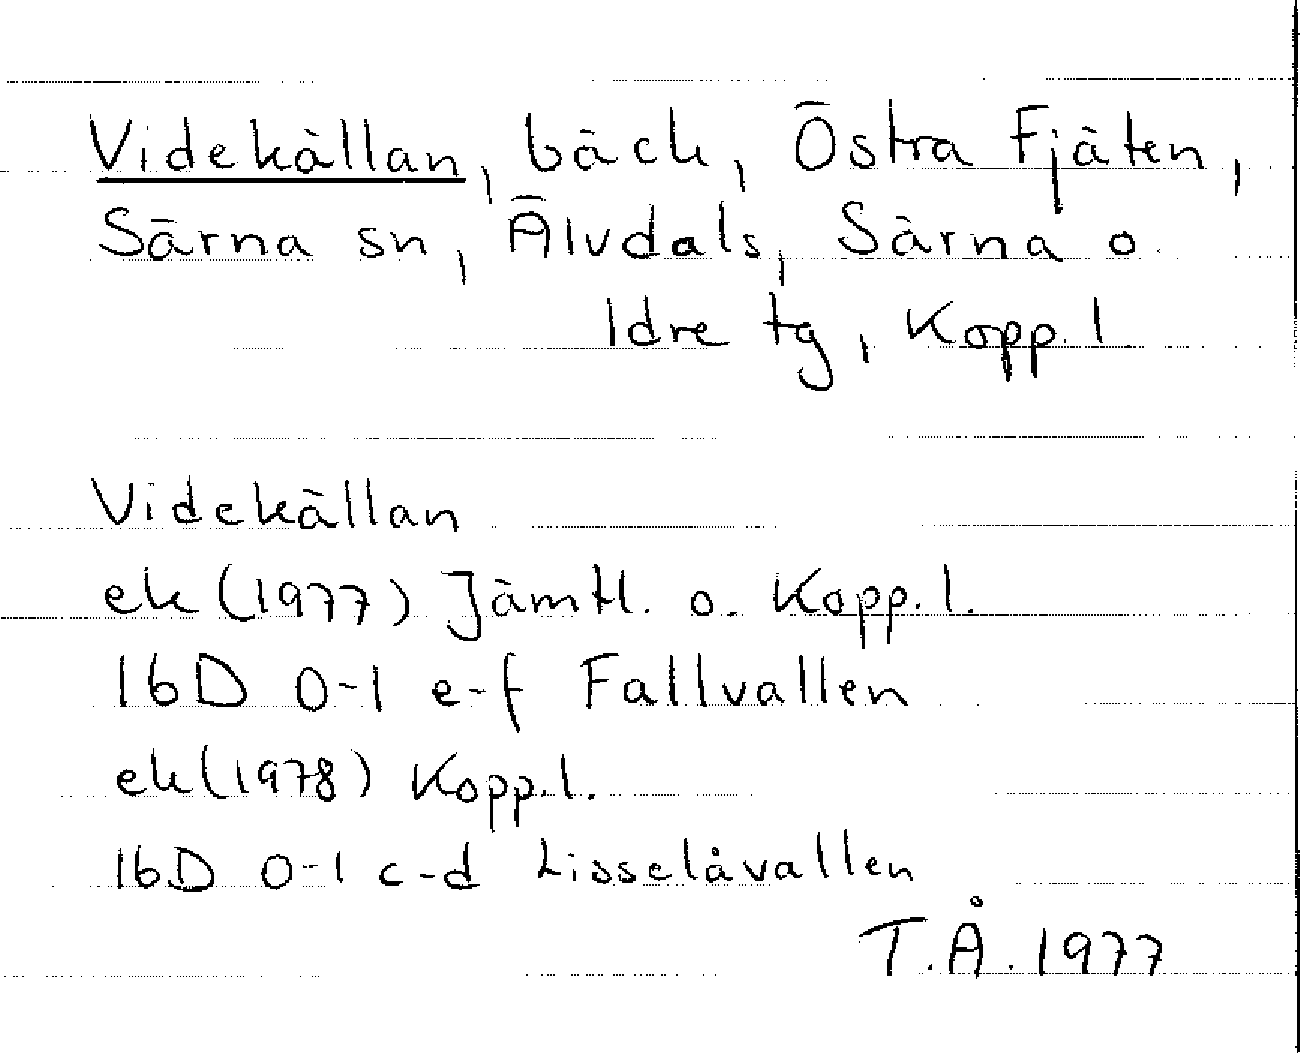 Videkällan, bäck, Östra Fjäten,
Särna sn, Älvdals, Särna o.
Idre tg, Kopp. l
Videkällan
ek (1977) Jämtl. o. Kopp. l.
16D 0-1 e-f Fallvallen
ek (1978) Kopp.l.
16D 0-1 c-d Lisselåvallen
T.Å. 1977